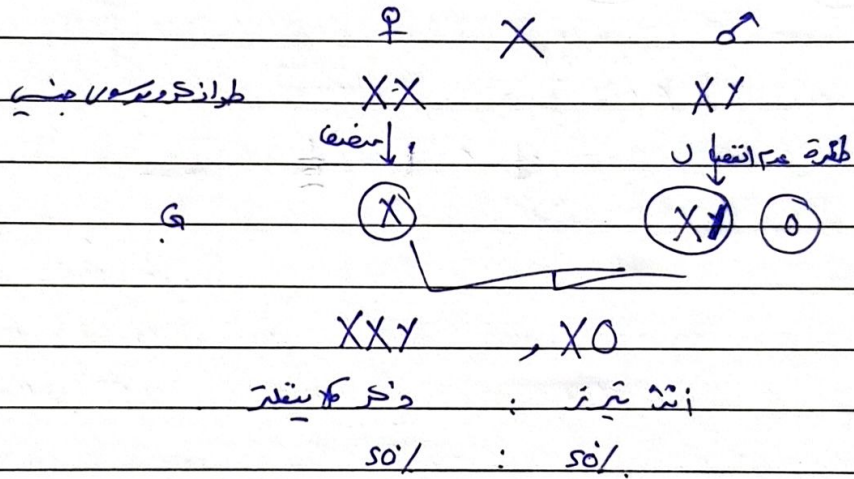 ♀ X ♂
طراز كروموسومي جنسي XX XY
انتصاف طفرة عدم انفصال
G X XY 0
XXY , XO
ذكر كلاينفلتر : أنثى تيرنر
50% : 50%